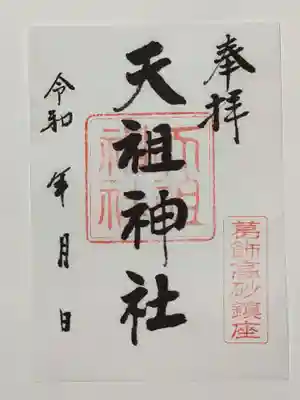 奉拝
天祖神社
天祖神社
葛飾高砂鎮座
令和 年 月 日